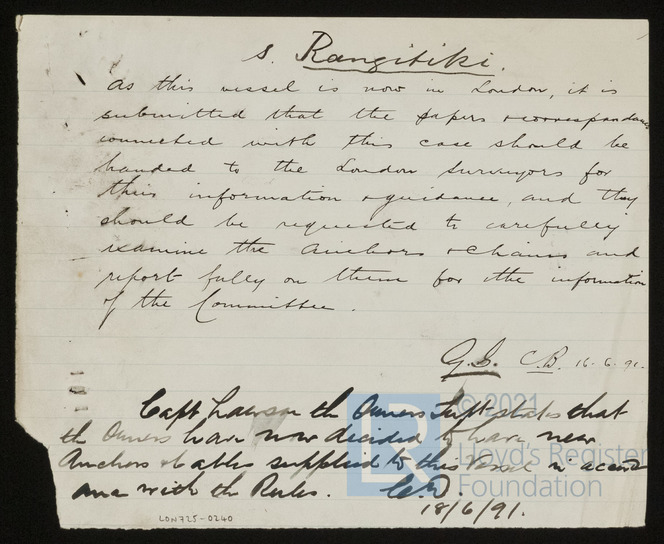 s. Rangitiki.
As this vessel is now in London, it is
submitted that the papers & correspondance
connected with this case should be
handed to the London Surveyors for
their information & guidance, and they
should be requested to carefully
examine the anchors & chains and
report fully on them for the information
of the Committee.
G.S. C.B. 16.6.91.
Capt Lawson the Owners Supt states that
the Owners have now decided to have new
Anchors & Cables supplied to this Vessel in accord
ance with the Rules.
18/6/91.
LON725-0240
© 2021
Lloyd's Register
Foundation